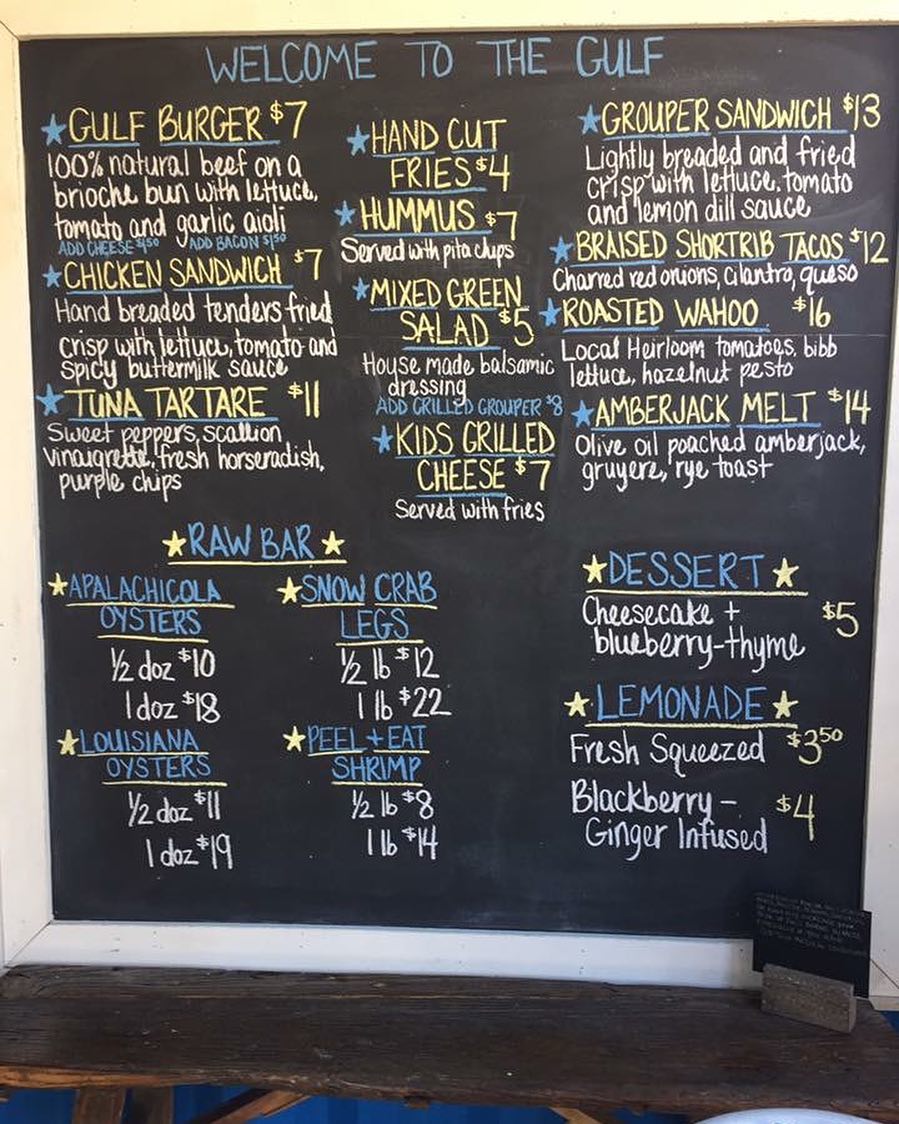 WELCOME TO THE GULF
GULF BURGER $7
100% natural beef on a
brioche bun with lettuce,
tomato and garlic aioli
ADD CHEESE $1.50 ADD BACON $1.50
CHICKEN SANDWICH $7
Hand breaded tenders fried
crisp with lettuce, tomato and
spicy buttermilk sauce
TUNA TARTARE $11
Sweet peppers, scallion
vinaigrette, fresh horseradish,
purple chips
HAND CUT
FRIES $4
HUMMUS $7
Served with pita chips
MIXED GREEN
SALAD $5
House made balsamic
dressing
ADD GRILLED GROUPER $8
KIDS GRILLED
CHEESE $7
Served with fries
GROUPER SANDWICH $13
Lightly breaded and fried
crisp with lettuce, tomato
and lemon dill sauce
BRAISED SHORTRIB TACOS $12
Charred red onions, cilantro, queso
ROASTED WAHOO $16
Local Heirloom tomatoes, bibb
lettuce, hazelnut pesto
AMBERJACK MELT $14
Olive oil poached amberjack,
gruyere, rye toast
RAW BAR
APALACHICOLA
OYSTERS
1/2 doz $10
1 doz $18
LOUISIANA
OYSTERS
1/2 doz $11
1 doz $19
SNOW CRAB
LEGS
1/2 lb $12
1 lb $22
PEEL + EAT
SHRIMP
1/2 lb $8
1 lb $14
DESSERT
Cheesecake +
blueberry-thyme $5
LEMONADE
Fresh Squeezed $3.50
Blackberry-
Ginger Infused $4